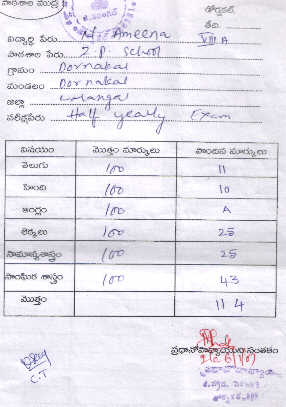 పాఠశాల ముద్ర
తరగతి
విద్యార్థి పేరు M. Ameena VIII A
పాఠశాల పేరు Z.P. School
గ్రామం Dornakal
మండలం Dornakal
జిల్లా Waranga
పరీక్షపేరు Half yearly Exam
విషయం మొత్తం మార్కులు పొందిన మార్కులు
తెలుగు 100 11
హింది 100 10
ఇంగ్లం 100 A
లెక్కలు 100 25
సామాన్యశాస్త్రం 100 25
సాంఘిక శాస్త్రం 100 43
మొత్తం 114
ప్రధానోపాధ్యాయుని సంతకం
C.T